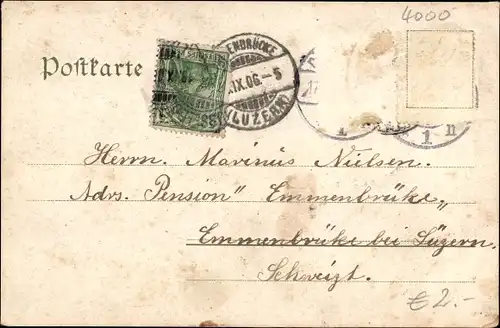 4000
Postkarte
ENDRÜCKE
.IX.06.-5
(LUZERN)
1
1 n
Herrn. Marinus Nielsen.
Adrs. Pension" Emmenbrüke"
Emmenbrüke bei Lüzern,
Schweizt.
€ 2.-